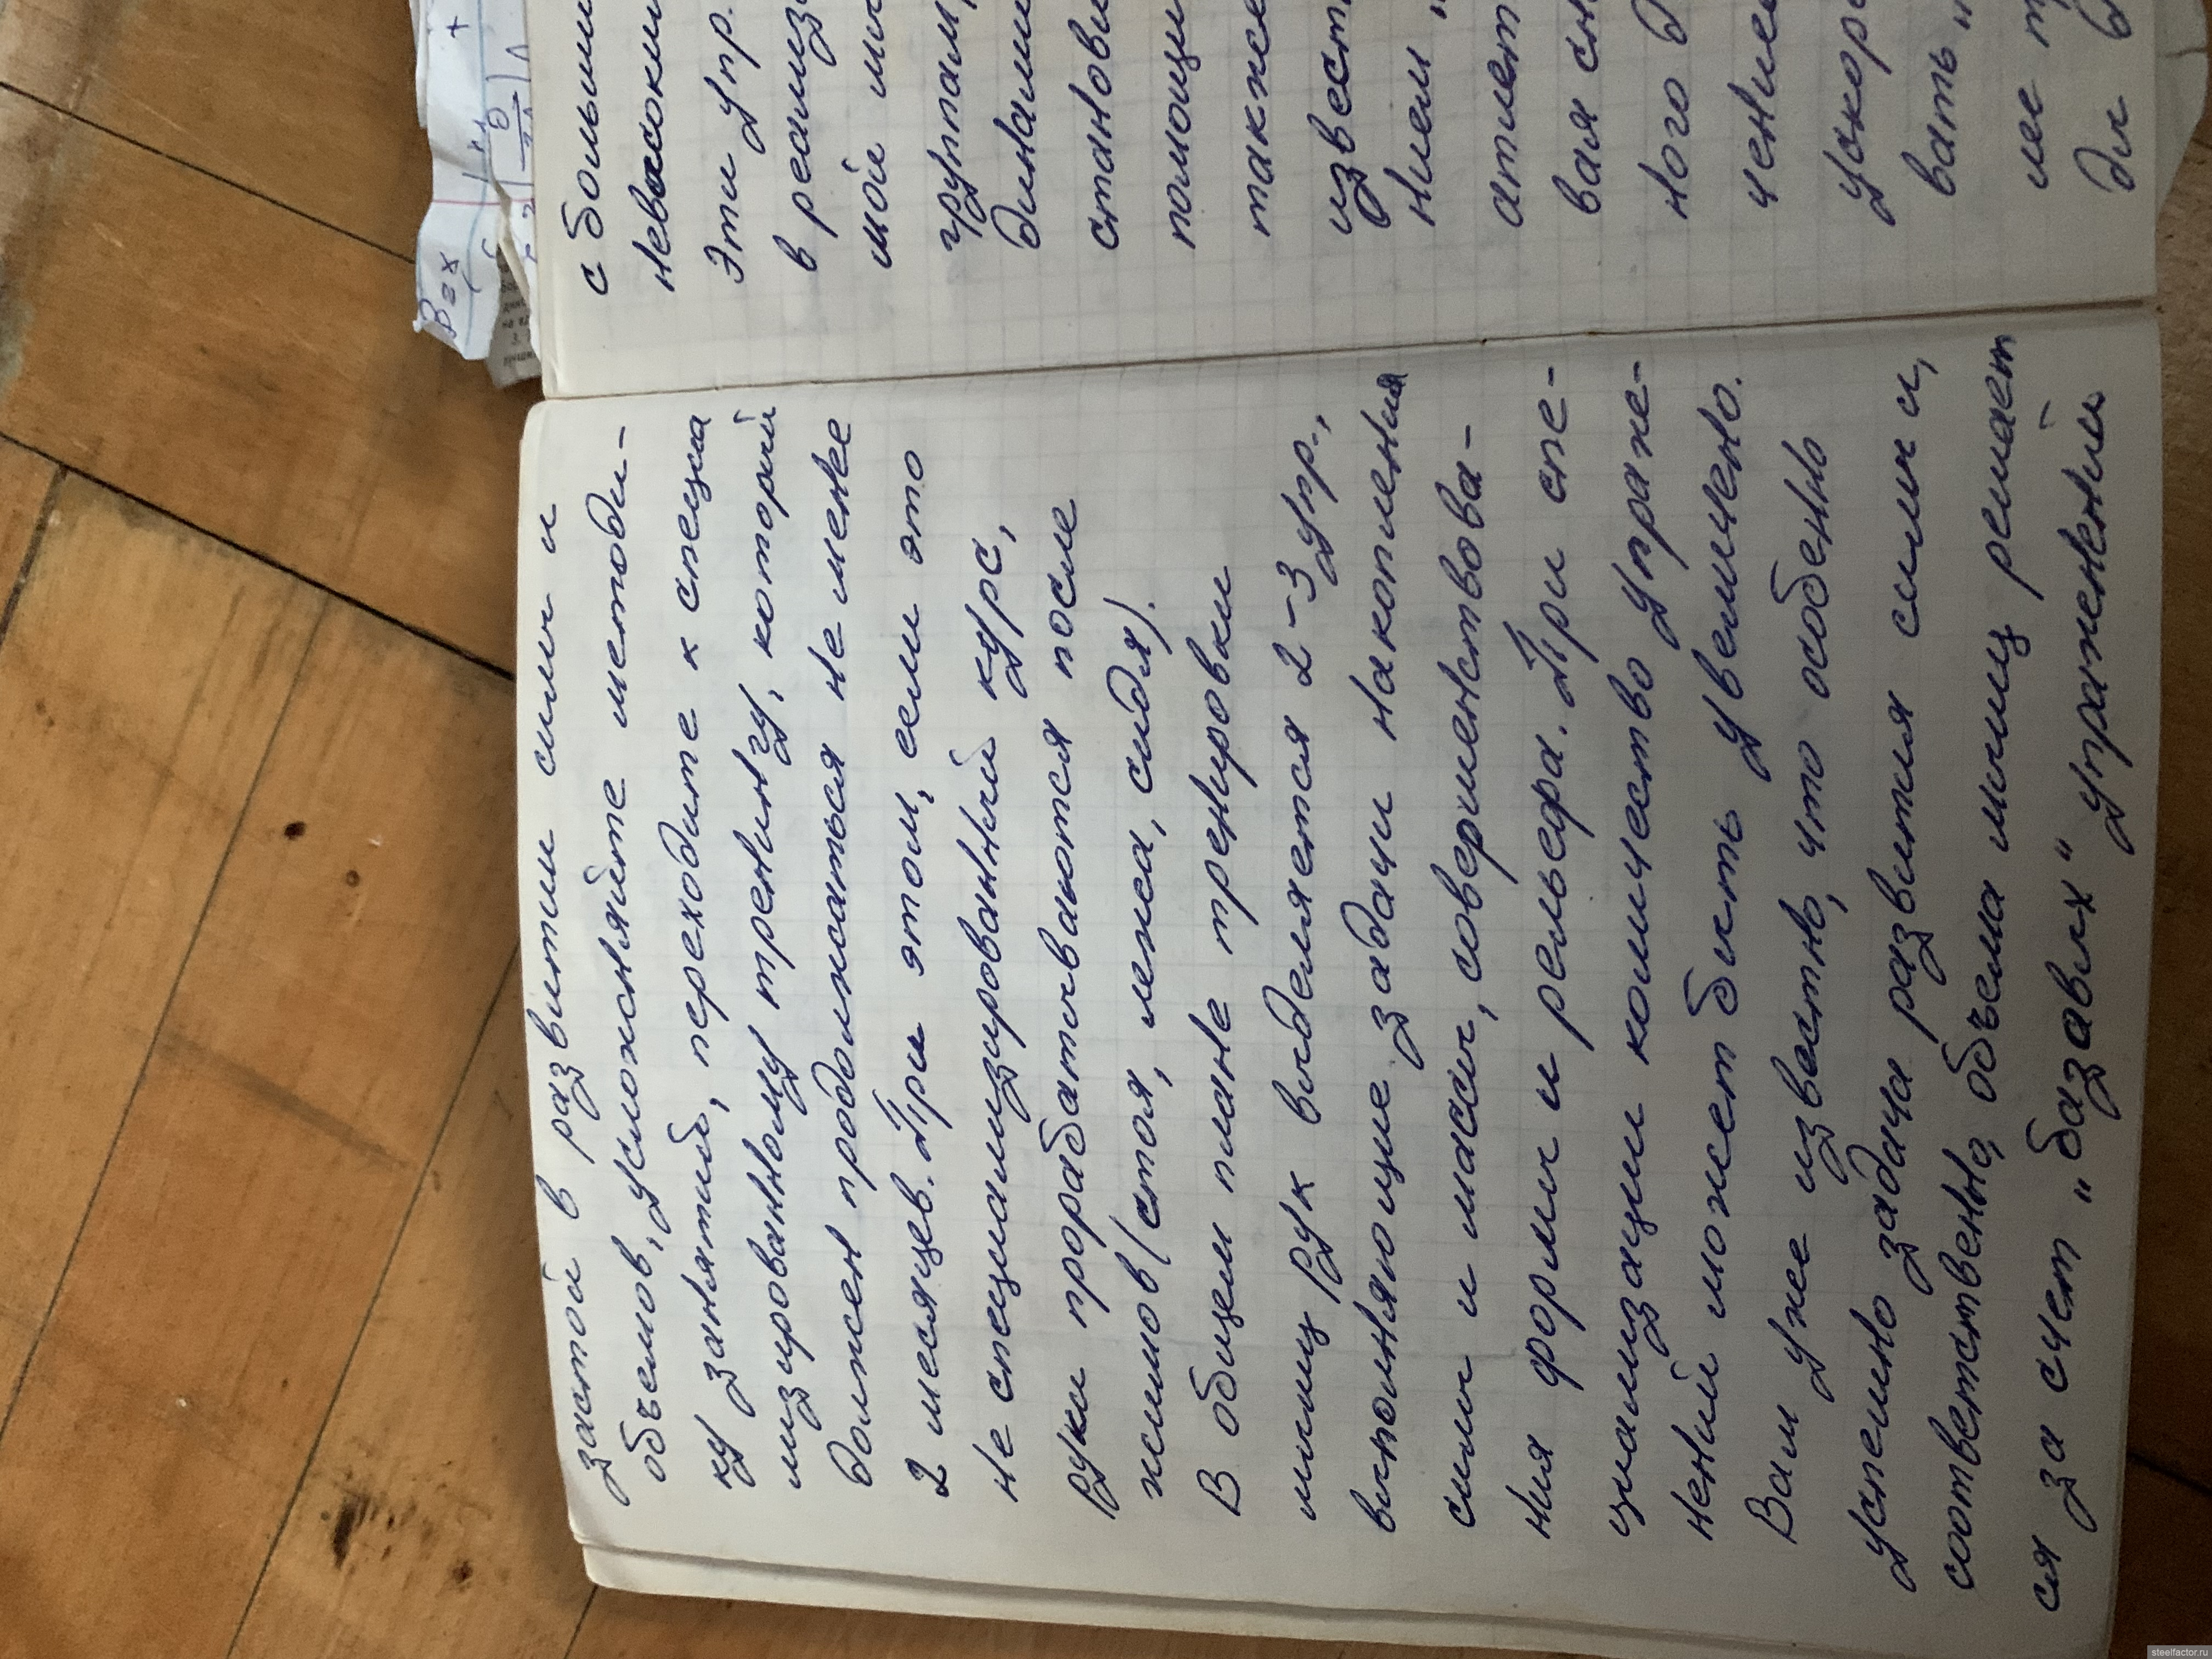 застой в развитии силы и
объемов, усложняйте методи-
ку занятий, переходите к специа
лизированному тренингу, который
должен продолжаться не менее
2 месяцев. При этом, если это
не специализированный курс,
руки прорабатываются после
жимов (стоя, лежа, сидя).
В общем плане тренировки
мышц рук выделяется 2-3 упр.,
выполняющие задачи накопления
силы и массы, совершенствова-
ния формы и рельефа. При спе-
циализации количество упраж-
нений может быть увеличено.
Вам уже известно, что особенно
успешно задача развития силы и,
соответственно, объема мышц решает
ся за счет "базавых" упражнений
с большим
невысоким
Эти упр.
в реализ
мой мы
группам,
динами
станови
помощи
также
извест
нием "
атлет
вая сн
ного д
чение
ускоре
вать "
ме т
дм д
В=х
steelfactor.ru